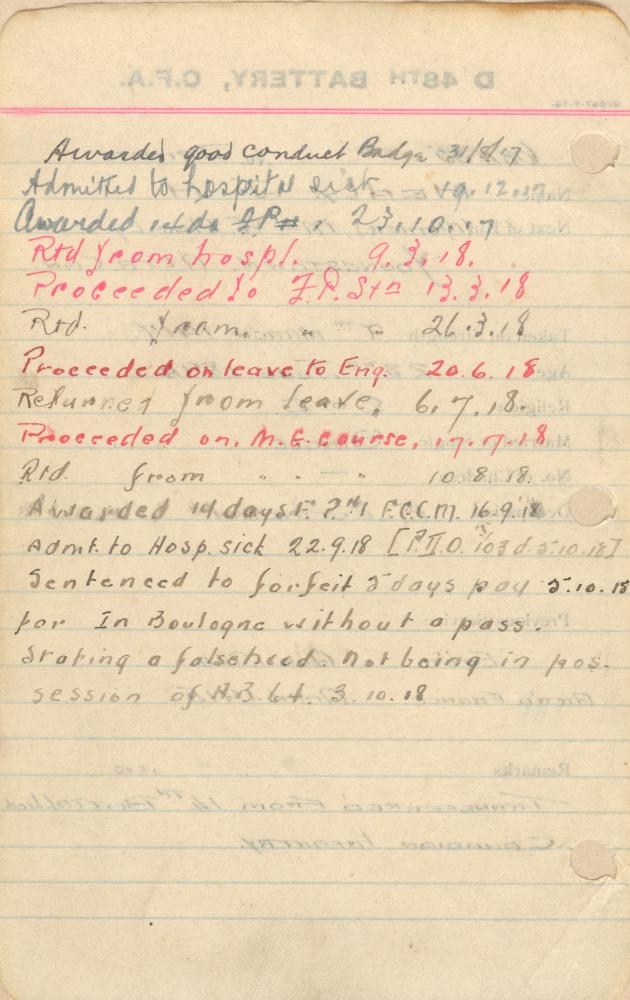 D 48TH BATTERY, C.F.A.
Awarded good conduct Badge 31/8/17
Admitted to hospital sick 19.12.17
Awarded 14 ds F.P. # 1 23.10.17
Rtd from hospl. 9.3.18.
Proceeded to F.P. Stn 13.3.18
Rtd. from " " 26.3.18
Proceeded on leave to Eng. 20.6.18
Returned from leave, 6.7.18.
Proceeded on. M.G. course, 17.7.18.
Rtd from " " " 10.8.18.
Awarded 14 days F.P. #1 F.G.C.M. 16.9.18
Admt. to Hosp. sick 22.9.18 [P.II.O. 103 d. 5.10.18]
Sentenced to forfeit 5 days pay 5.10.18
for In Boulogne without a pass.
Stating a falsehood. Not being in pos-
session of A.B. 64. 3.10.18
Remarks
Transferred From 14TH Battalion
Canadian Infantry.